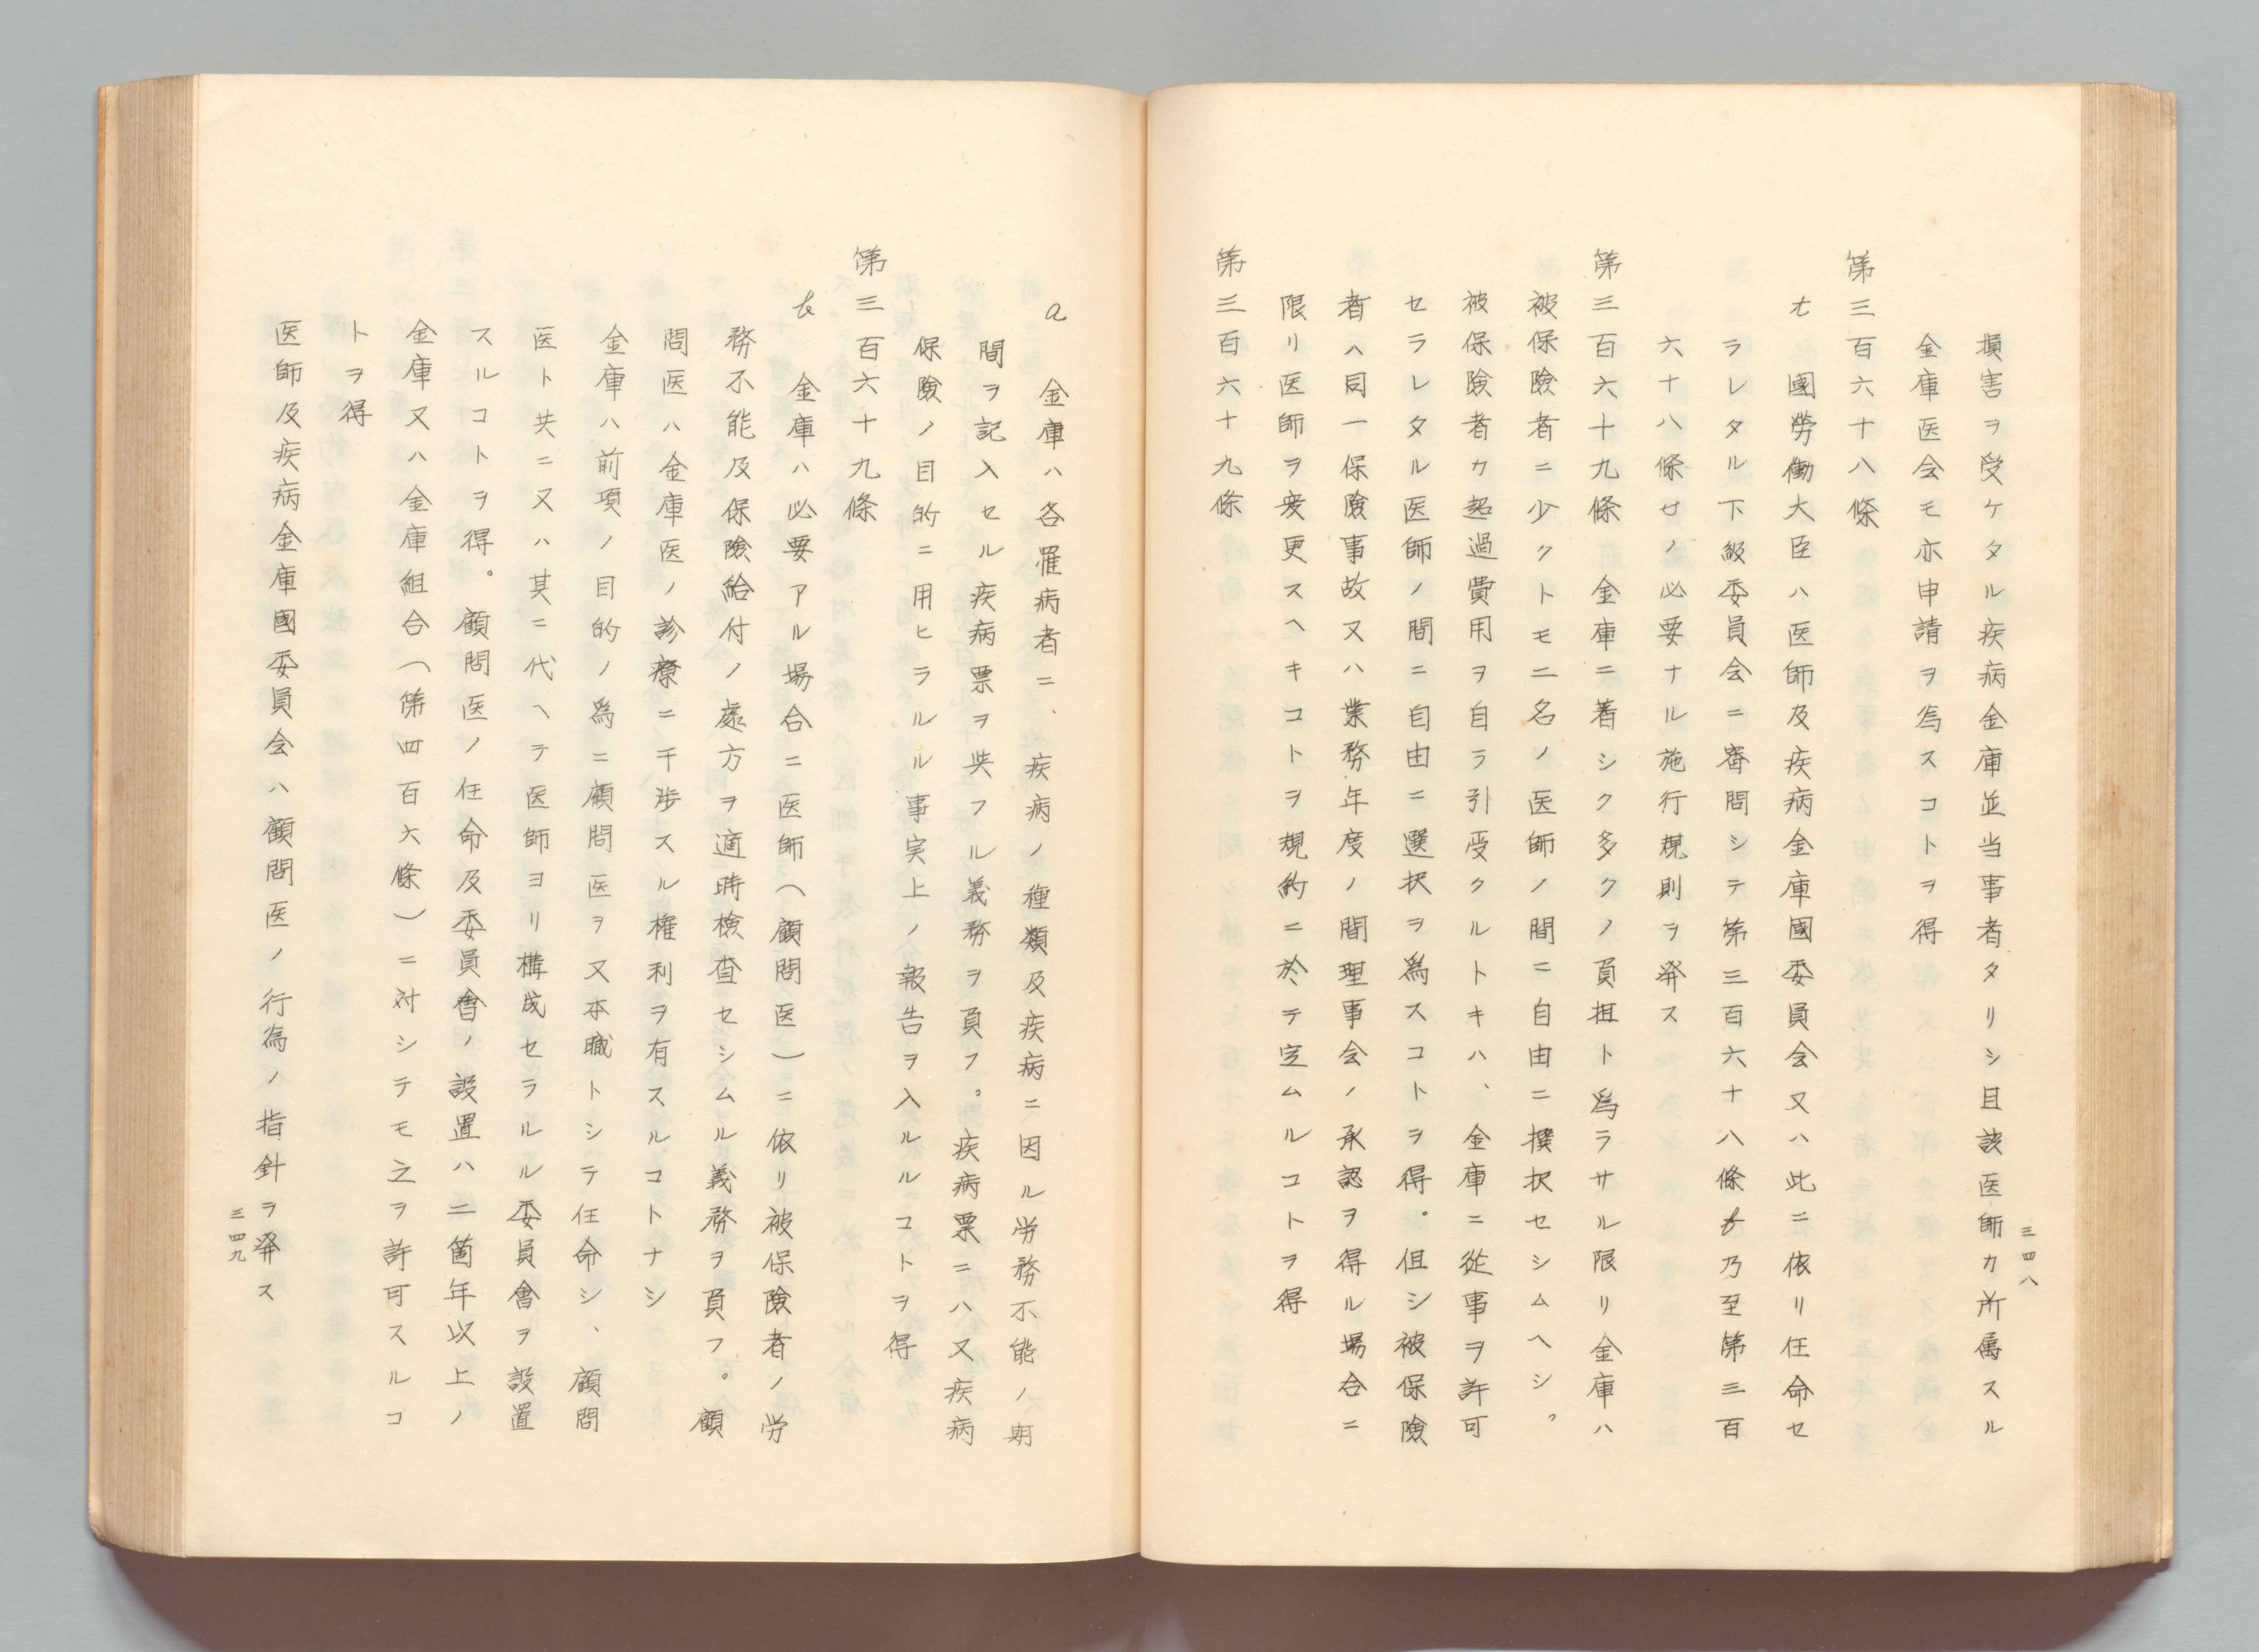 損害ヲ受ケタル疾病金庫並当事者タリシ目該医師カ所属スル
金庫医会モ亦申請ヲ為スコトヲ得
第三百六十八條
t 國勞働大臣ハ医師及疾病金庫國委員会又ハ此ニ依リ任命セ
ラレタル下級委員会ニ審問シテ第三百六十八條b乃至第三百
六十八條せノ必要ナル施行規則ヲ発ス
第三百六十九條 金庫ニ著シク多クノ負担ト為ラサル限リ金庫ハ
被保険者ニ少クトモ二名ノ医師ノ間ニ自由ニ撰択セシムヘシ。
被保険者カ超過費用ヲ自ラ引受クルトキハ、金庫ニ従事ヲ許可
セラレタル医師ノ間ニ自由ニ選択ヲ為スコトヲ得。但シ被保険
者ハ同一保険事故又ハ業務年度ノ間理事会ノ承認ヲ得ル場合ニ
限リ医師ヲ変更スヘキコトヲ規約ニ於テ定ムルコトヲ得
第三百六十九條
三四八
a 金庫ハ各罹病者ニ、疾病ノ種類及疾病ニ因ル労務不能ノ期
間ヲ記入セル疾病票ヲ与フル義務ヲ負フ。疾病票ニハ又疾病
保険ノ目的ニ用ヒラルル事実上ノ報告ヲ入ルルコトヲ得
第三百六十九條
b 金庫ハ必要アル場合ニ医師(顧問医)ニ依リ被保険者ノ労
務不能及保険給付ノ處方ヲ適時検査セシムル義務ヲ負フ。顧
問医ハ金庫医ノ診療ニ干渉スル権利ヲ有スルコトナシ
金庫ハ前項ノ目的ノ為ニ顧問医ヲ又本職トシテ任命シ、顧問
医ト共ニ又ハ其ニ代ヘテ医師ヨリ構成セラルル委員會ヲ設置
スルコトヲ得。顧問医ノ任命及委員會ノ設置ハ二箇年以上ノ
金庫又ハ金庫組合(第四百六條)ニ対シテモ之ヲ許可スルコ
トヲ得
医師及疾病金庫國委員会ハ顧問医ノ行為ノ指針ヲ発ス
三四九